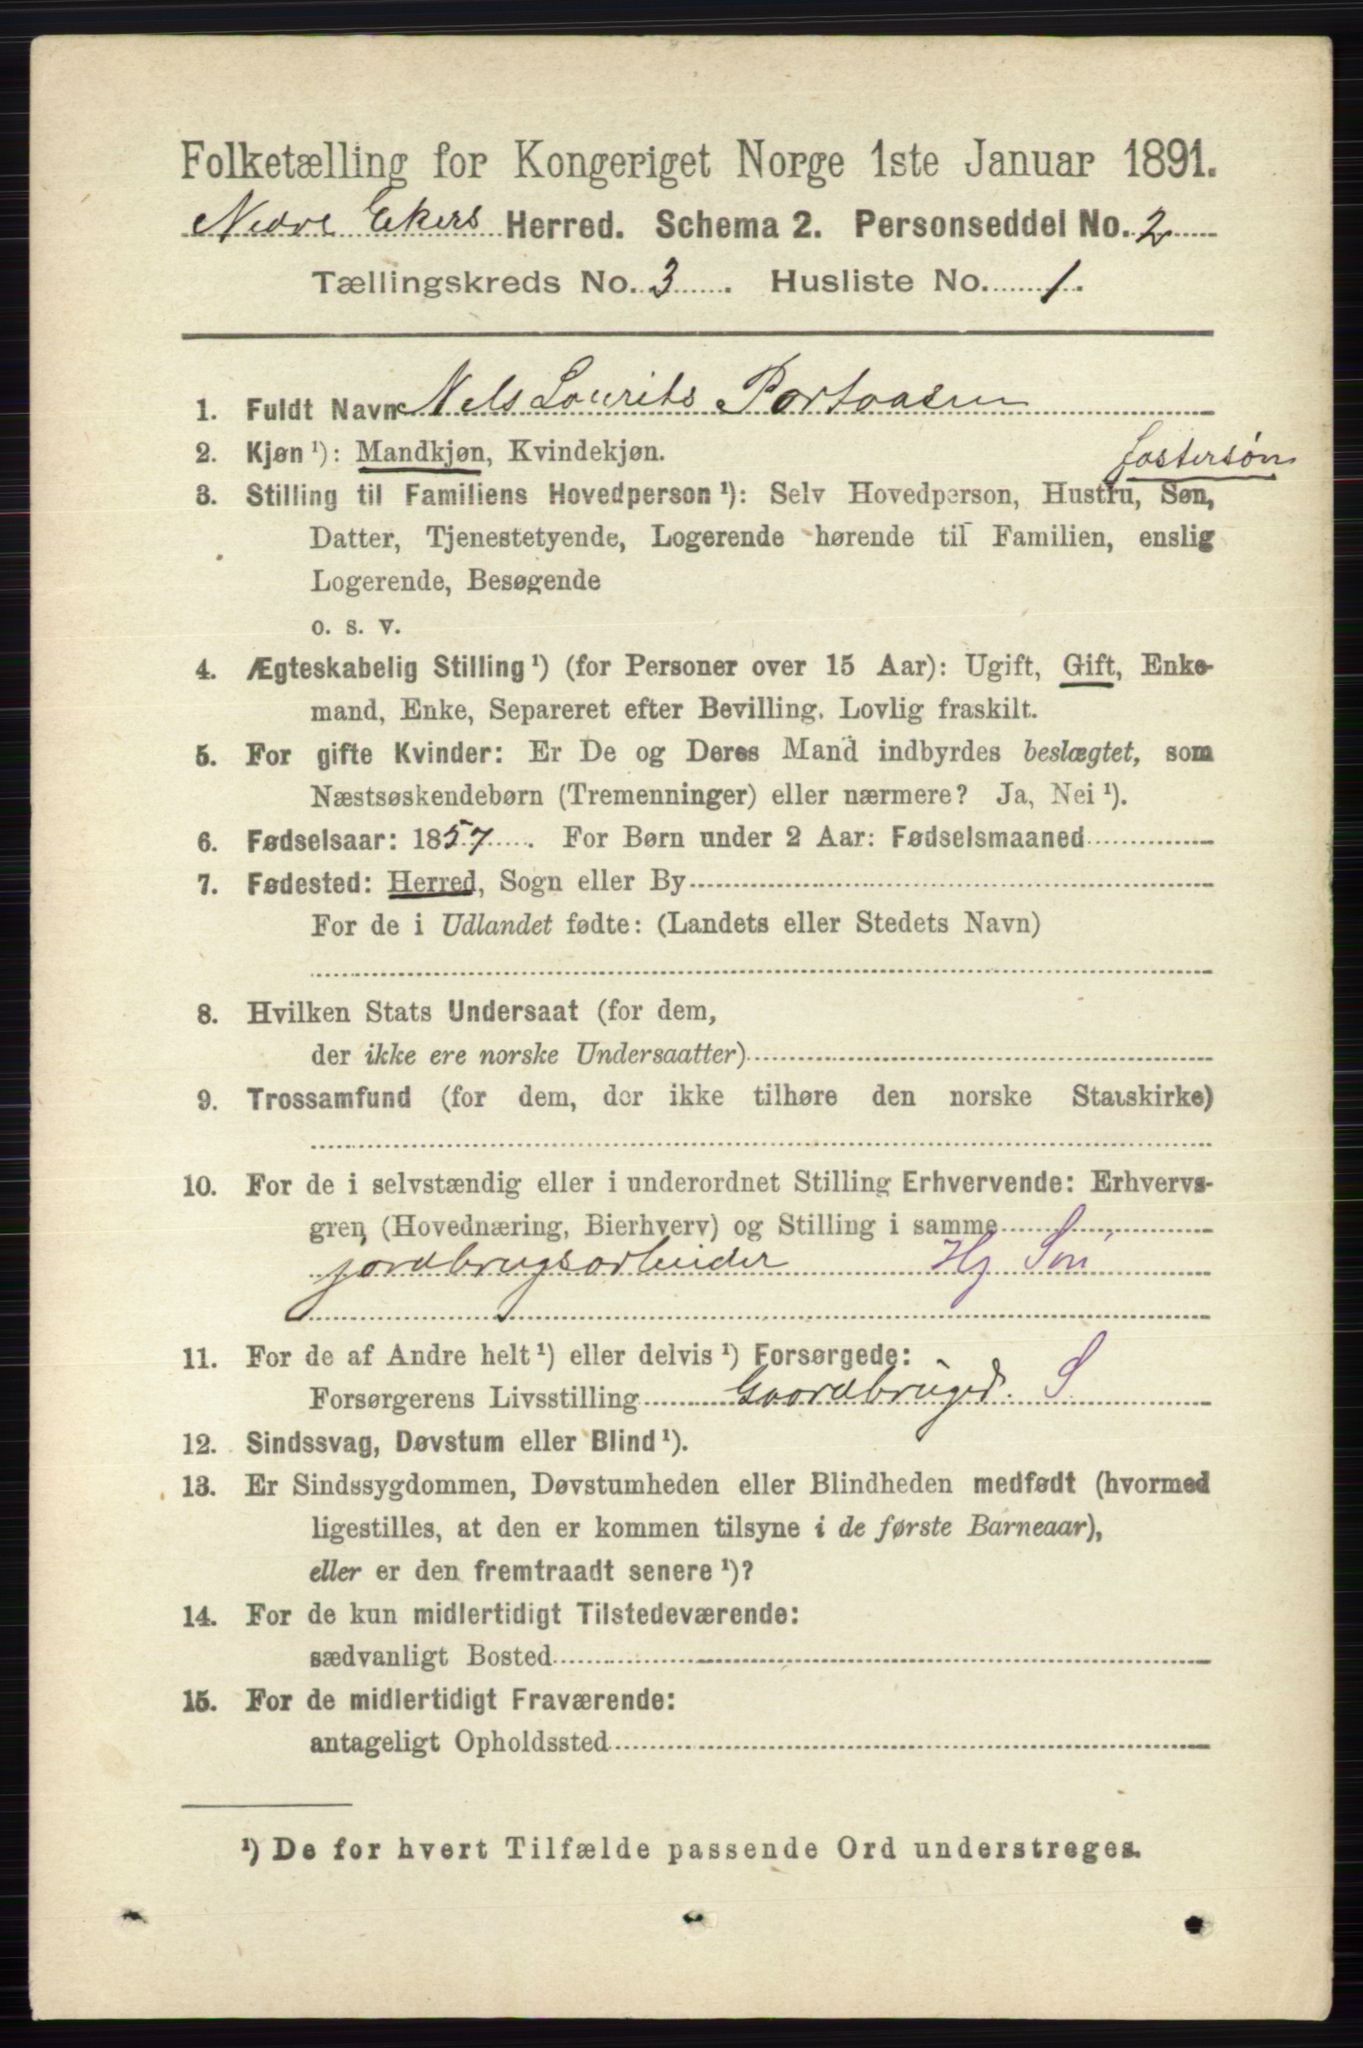 Folketælling for Kongeriget Norge 1ste Januar 1891.
Nedre Ekers Herred. Schema 2. Personseddel No. 2
Tællingskreds No. 3. Husliste No. 1.
1. Fuldt Navn Nels Lourits Portaasen
2. Kjøn ¹): Mandkjøn, Kvindekjøn.
fostersøn
3. Stilling til Familiens Hovedperson ¹): Selv Hovedperson, Hustru, Søn,
Datter, Tjenestetyende, Logerende hørende til Familien, enslig
Logerende, Besøgende
o. s. v.
4. Ægteskabelig Stilling ¹) (for Personer over 15 Aar): Ugift, Gift, Enke-
mand, Enke, Separeret efter Bevilling. Lovlig fraskilt.
5. For gifte Kvinder: Er De og Deres Mand indbyrdes beslægtet, som
Næstsøskendebørn (Tremenninger) eller nærmere? Ja, Nei ¹).
6. Fødselsaar: 1857. For Børn under 2 Aar: Fødselsmaaned
7. Fødested: Herred, Sogn eller By
For de i Udlandet fødte: (Landets eller Stedets Navn)
8. Hvilken Stats Undersaat (for dem,
der ikke ere norske Undersaatter)
9. Trossamfund (for dem, der ikke tilhøre den norske Statskirke)
10. For de i selvstændig eller i underordnet Stilling Erhvervende: Erhvervs-
gren (Hovednæring, Bierhverv) og Stilling i samme
jordbrugsarbeider Hj Søn
11. For de af Andre helt ¹) eller delvis ¹) Forsørgede:
Forsørgerens Livsstilling Gaardbruger. S
12. Sindssvag, Døvstum eller Blind ¹).
13. Er Sindssygdommen, Døvstumheden eller Blindheden medfødt (hvormed
ligestilles, at den er kommen tilsyne i de første Barneaar),
eller er den fremtraadt senere ¹)?
14. For de kun midlertidigt Tilstedeværende:
sædvanligt Bosted
15. For de midlertidigt Fraværende:
antageligt Opholdssted
¹) De for hvert Tilfælde passende Ord understreges.